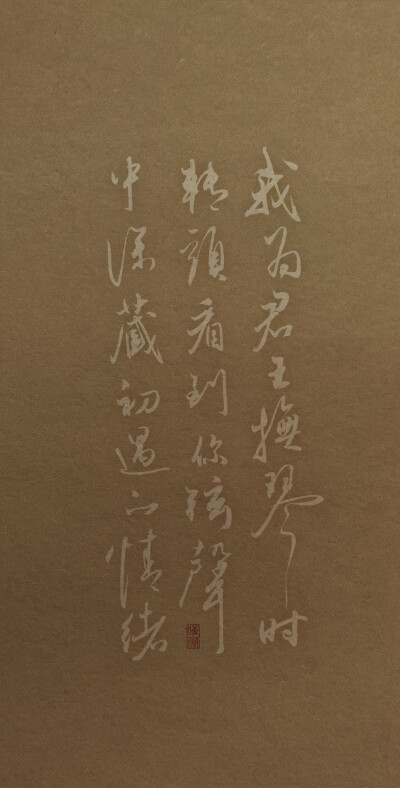 我为君王撫琴时
轉頭看到你絃聲
中深藏初遇的情绪